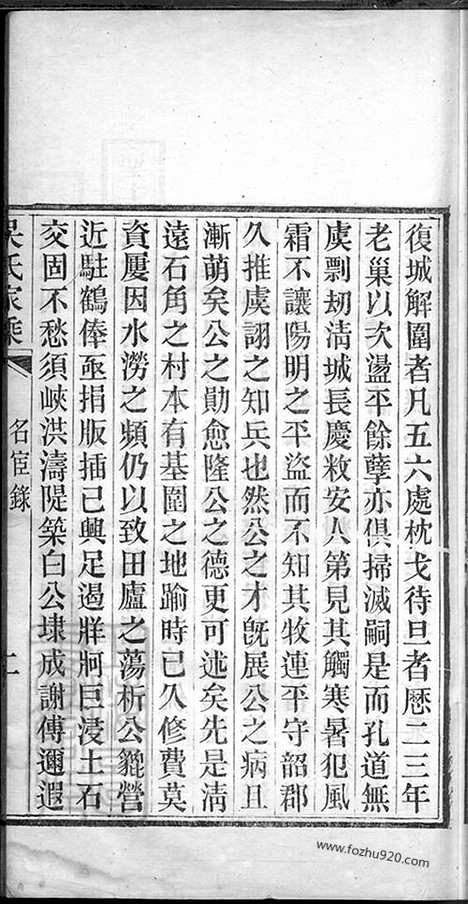 復城解圍者凡五六處枕戈待旦者歷二三年
老巢以次盪平餘孽亦俱掃滅嗣是而孔道無
虞剽刼清城長慶敉安人第見其觸寒暑犯風
霜不讓陽明之平盜而不知其牧連平守韶郡
久推虞詡之知兵也然公之才旣展公之病且
漸萌矣公之勛愈隆公之德更可述矣先是清
遠石角之村本有基圍之地踰時已久修費莫
資厦因水澇之頻仍以致田廬之蕩析公貔營
近駐鶴俸亟捐版插已興足遏牂牁巨浸土石
交固不愁須峽洪濤隄築白公埭成謝傅邇遐
吳氏家乘
名宦錄
二
www.fozhu920.com